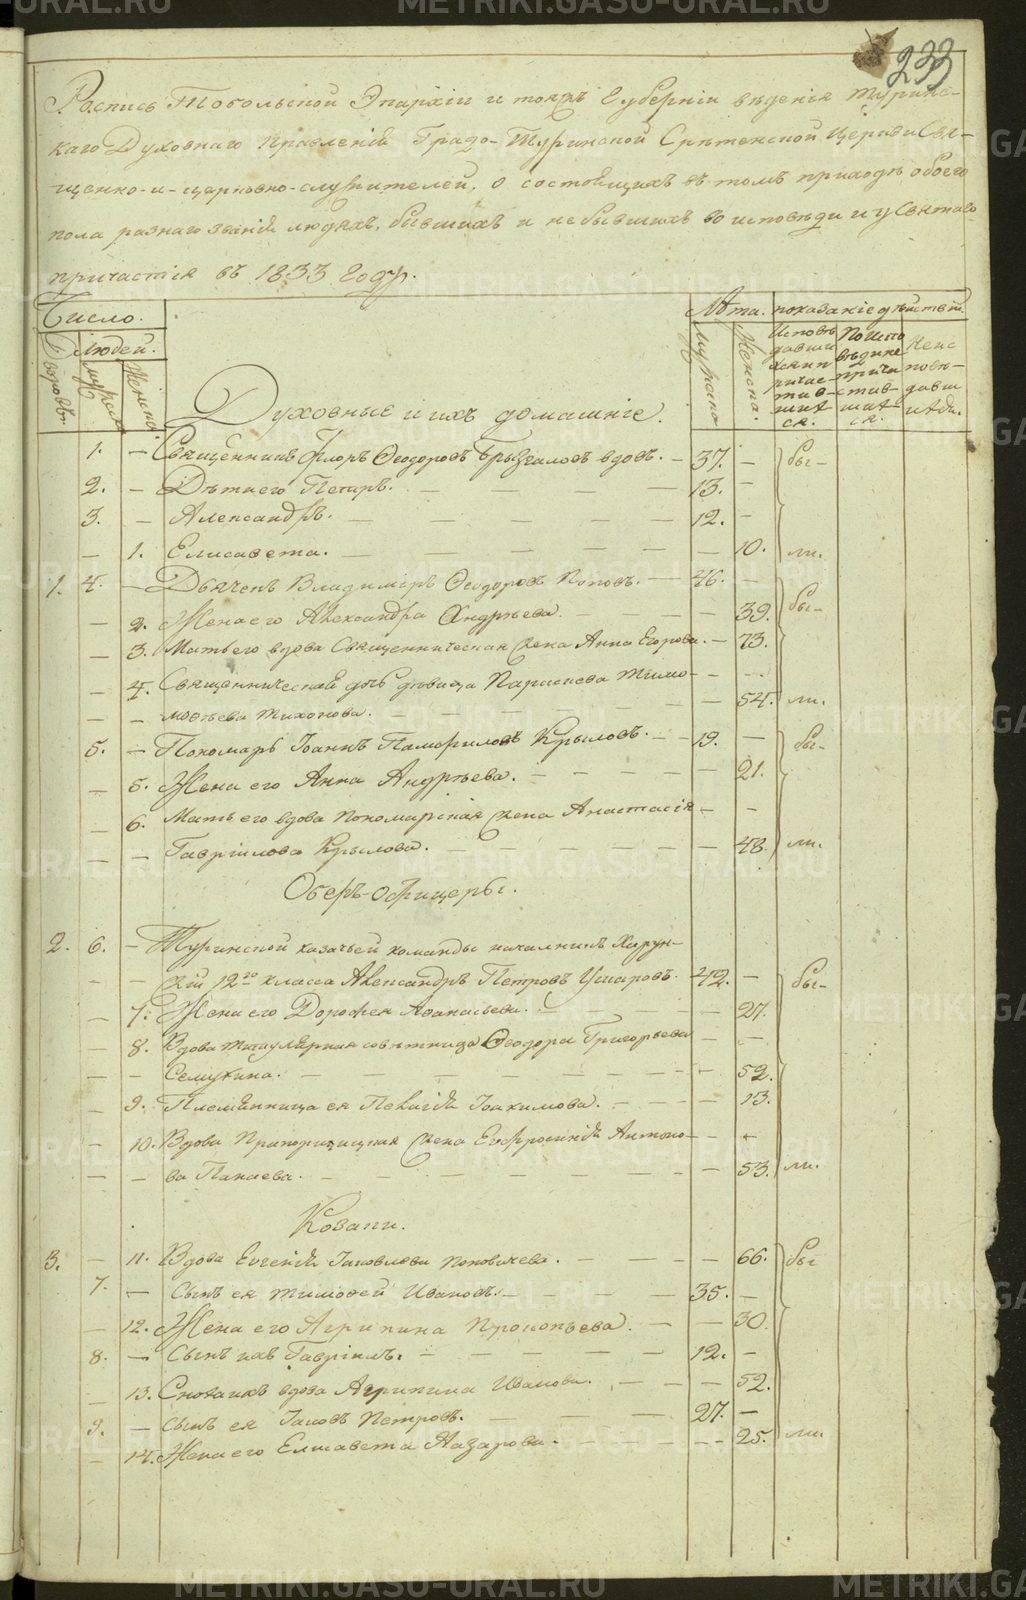 233
Роспись Тобольской Эпархіи и тояжъ Губерніи вѣденія Туринс-
каго Духовнаго Правленія Градо-Туринской Срѣтенской Церкви Свя-
щенно-и-церковно-служителей, о состоящихъ въ томъ приходѣ обоего
пола разнаго званія людяхъ, бывшихъ и небывшихъ во исповѣди и у Святаго
причастія въ 1833 Году.
Число. Лѣта. показаніе дѣйствій.
Дворовъ. Людей. Мужска Женска Мужска. Женска. Исповѣдавшихся и причастившихся. По исповѣди не причастившихся. Неисповѣдавшихся.
Духовные и ихъ домашніе.
1. — Священникъ Флоръ Ѳеодоровъ Брызгаловъ вдовъ. — 37. — бы-
2. — Дѣти его Петръ. — 13. —
3. — Александръ. — 12. —
— 1. Елисавета. — 10. ли.
1. 4. — Дьячекъ Владиміръ Ѳеодоровъ Поповъ. — 46. —
— 2. Жена его Александра Андрѣева — 39. бы-
— 3. Мать его вдова Священническая жена Анна Егорова. — 73.
— 4. Священническая дочь дѣвица Парасковья Тимо- — —
— — моѳѣева Тихонова. — 54. ли.
5. — Пономарь Іоаннъ Памфиловъ Крыловъ. — 19. — бы-
— 5. Жена его Анна Андрѣева. — 21.
— 6. Мать его вдова пономарская жена Анастасія — —
— — Гавріилова Крылова. — 48. ли.
Оберъ-офицеры.
2. 6. — Туринской казачьей команды начальникъ Хорун-
— — жій 12го класса Александръ Петровъ Ушаровъ. 42. — бы-
— 7. Жена его Дорофея Аѳанасьева. — 27.
— 8. Вдова титулярная совѣтница Ѳеодора Григорьева — —
— — Семухина. — 52.
— 9. Племянница ея Пелагія Іоакимова. — 13.
— 10. Вдова Прапорщицкая жена Евфросинія Антоно- — —
— — ва Панаева. — 53. ли.
Козаки.
3. — 11. Вдова Евгенія Іаковлева Поповичева. — 66. бы
7. — Сынъ ея Тимоѳей Ивановъ. — 35. —
— 12. Жена его Агрипина Прокопьева. — 30.
8. — Сынъ ихъ Гавріилъ. — 12. —
— 13. Сноха ихъ вдова Агрипина Иванова. — 52.
9. — Сынъ ея Іаковъ Петровъ. — 27. —
— 14. Жена его Елисавета Назарова. — 25. ли.
METRIKI.GASO-URAL.RU